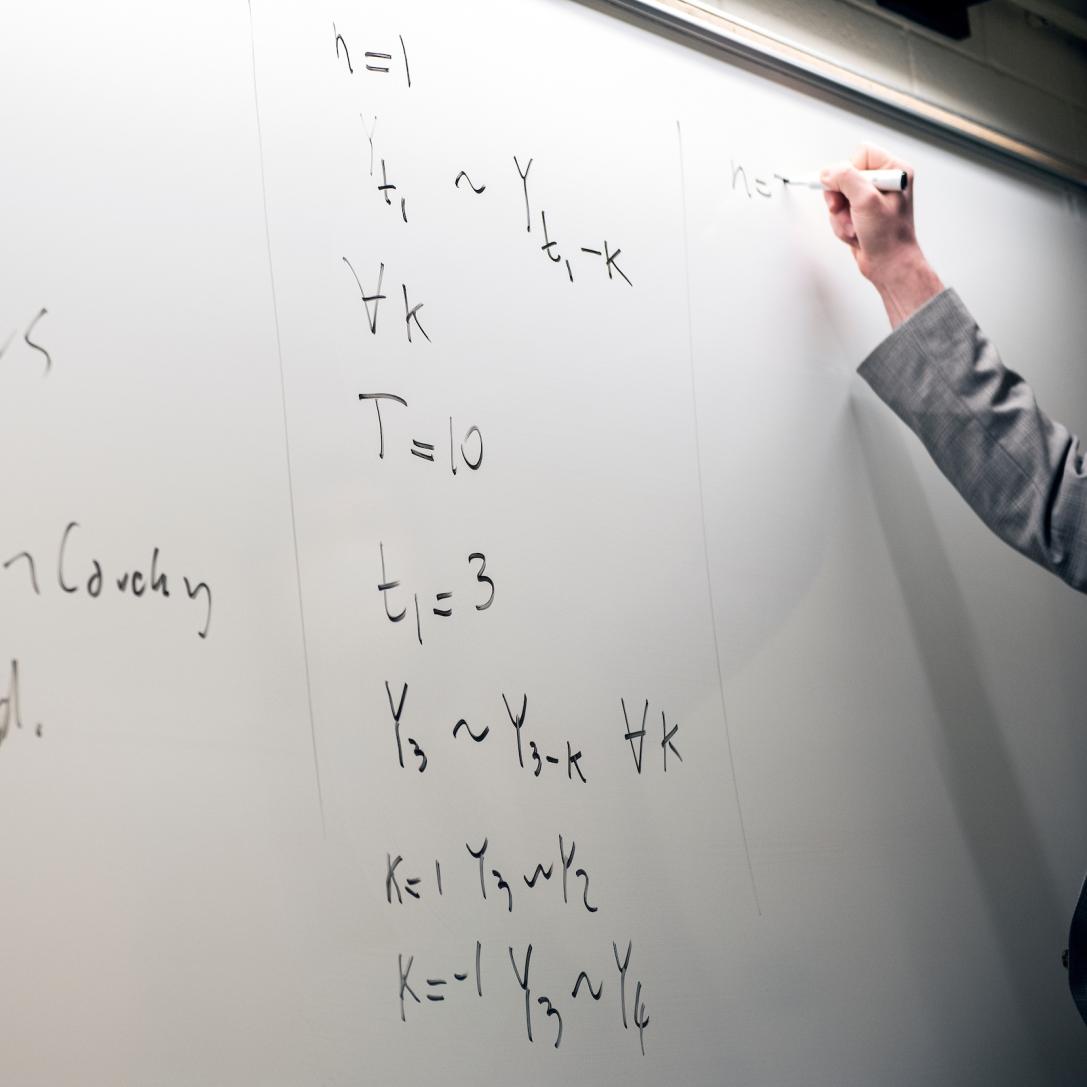 Cauchy
n=1
Y_{t_1} ~ Y_{t_1-k}
∀k
T=10
t_1=3
Y_3 ~ Y_{3-k} ∀k
k=1 Y_3 ~ Y_2
k=-1 Y_3 ~ Y_4
n=